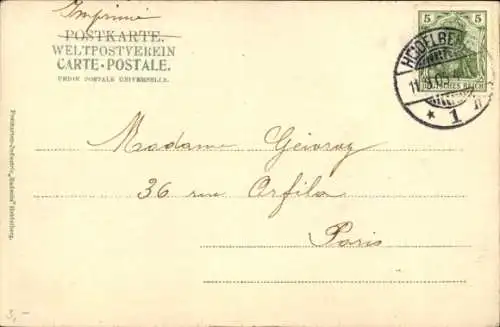 Imprimé
POSTKARTE.
WELTPOSTVEREIN
CARTE-POSTALE.
UNION POSTALE UNIVERSELLE.
5 5
DEUTSCHES REICH
HEIDELBE
11
* 1
Madame
36 rue Orfila
Paris
Heidelberg.
3,-